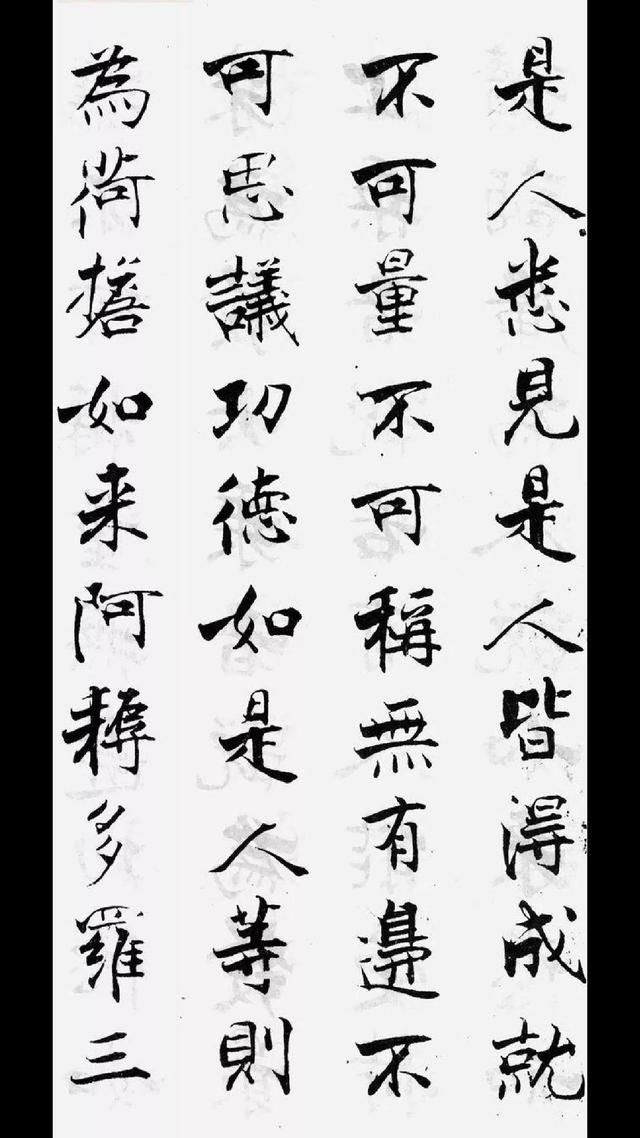 是人悉見是人皆得成就
不可量不可稱無有邊不
可思議功德如是人等則
為荷擔如来阿耨多羅三